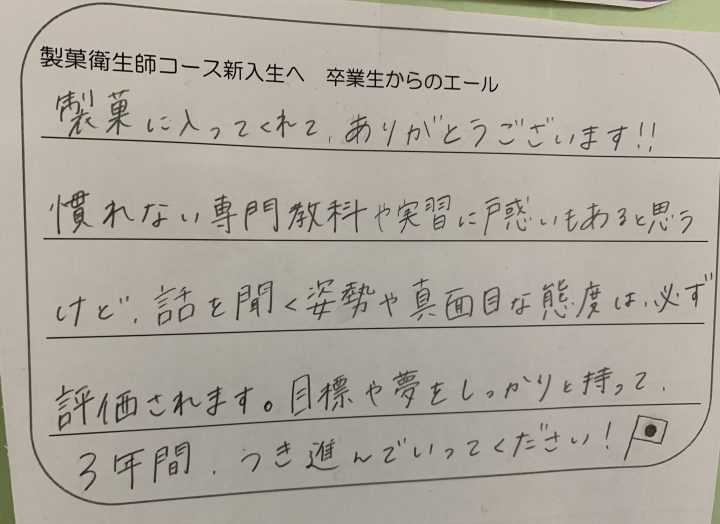 製菓衛生師コース新入生へ　卒業生からのエール
製菓に入ってくれて、ありがとうございます!!
慣れない専門教科や実習に戸惑いもあると思う
けど、話を聞く姿勢や真面目な態度は、必ず
評価されます。目標や夢をしっかりと持って、
3年間、つき進んでいってください!